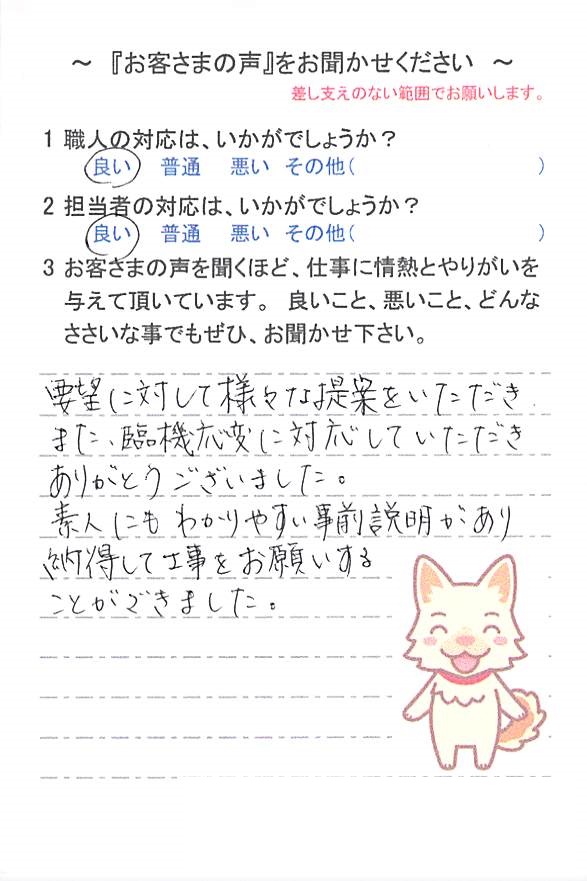 ～ 『お客さまの声』をお聞かせください ～
差し支えのない範囲でお願いします。
1 職人の対応は、いかがでしょうか？
良い 普通 悪い その他( )
2 担当者の対応は、いかがでしょうか？
良い 普通 悪い その他( )
3 お客さまの声を聞くほど、仕事に情熱とやりがいを
与えて頂いています。 良いこと、悪いこと、どんな
ささいな事でもぜひ、お聞かせ下さい。
要望に対して様々な提案をいただき
また、臨機応変に対応していただき
ありがとうございました。
素人にもわかりやすい事前説明があり
納得して工事をお願いする
ことができました。